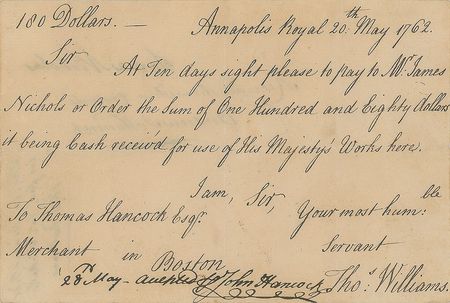 180 Dollars. — Annapolis Royal 20.th May 1762.
Sir
At Ten days sight please to pay to Mr. James
Nichols or Order the Sum of One Hundred and Eighty Dollars
it being Cash receiv'd for use of His Majesty's Works here.
I am, Sir,
To Thomas Hancock Esqr. Your most hum:ble
Merchant in Boston Servant
28th May - accepted John Hancock Thos. Williams.